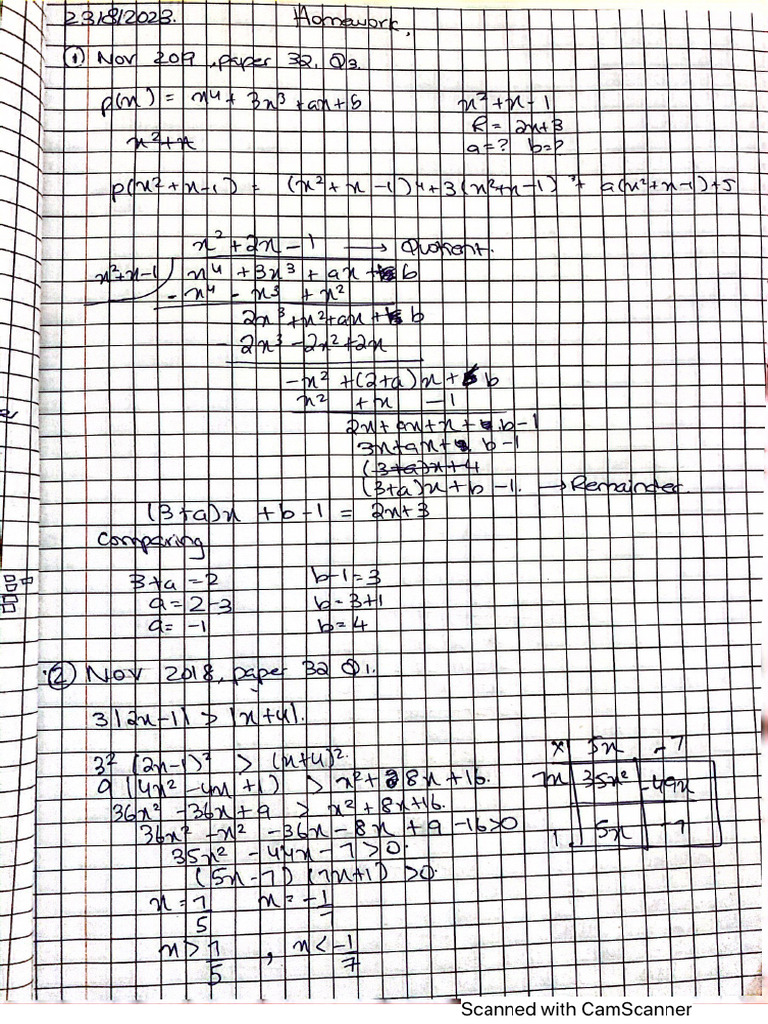 23/8/2023. Homework,
① Nov 2019, paper 32. Q3.
p(x) = x⁴ + 3x³ + ax + b x² + x - 1
R = 2x+3
x² + x a = ? b = ?
p(x² + x - 1) = (x² + x - 1)4 + 3(x² + x - 1)³ + a(x² + x - 1) + 5
x² + 2x - 1 → Quotient.
x² + x - 1 ) x⁴ + 3x³ + ax + b
- x⁴ - x³ + x²
2x³ + x² + ax + b
- 2x³ - 2x² + 2x
- x² + (2+a)x + b
x² + x - 1
2x + ax + x + b - 1
3x + ax + b - 1
(3+a)x + 4
(3+a)x + b - 1. → Remainder
(3+a)x + b - 1 = 2x+3
Comparing
3+a = 2 b-1 = 3
a = 2-3 b = 3+1
a = -1 b = 4
② Nov 2018, paper 32 Q1.
3|2x-1| > |x+4|.
3² (2x-1)² > (x+4)².
9 (4x² - 4x + 1) > x² + 8x + 16.
36x² - 36x + 9 > x² + 8x + 16.
36x² - x² - 36x - 8x + 9 - 16 > 0
35x² - 44x - 7 > 0.
(5x-7) (7x+1) > 0.
x = 7/5 x = -1/7
x > 7/5 , x < -1/7
x 5x -7
7x 35x² -49x
1 5x -7
Scanned with CamScanner